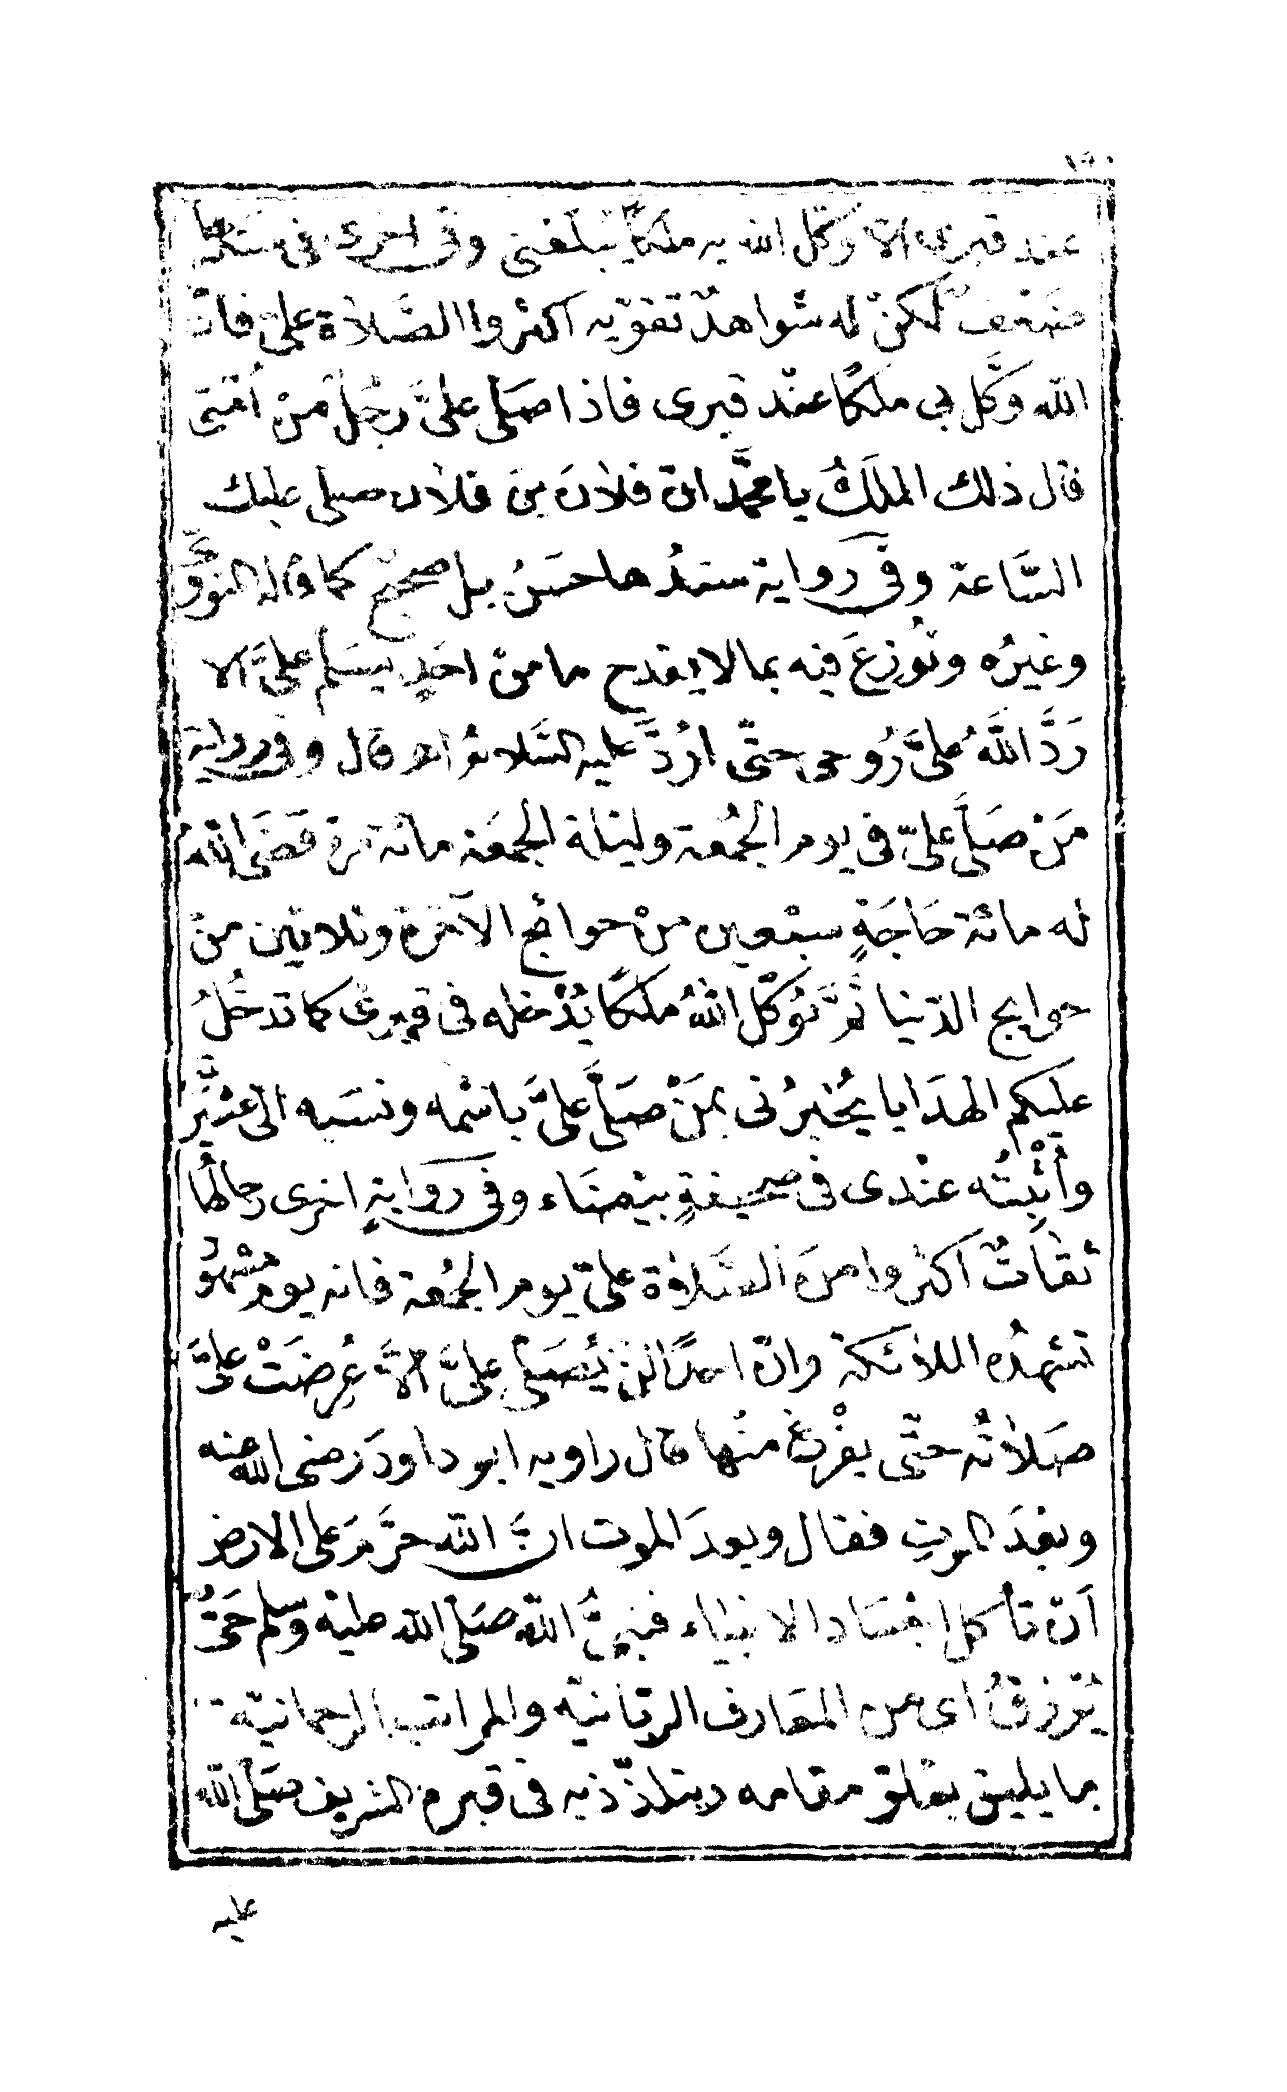 عند قبرى الا وكّل الله به ملكاً يبلغنى وفى اخرى فى سندها
ضعف لكنْ له شواهدٌ تقوّيه اكثروا الصَّلاة علىّ فانّ
الله وَكَّل بى ملكًا عنْد قبرى فاذا صَلى علىَّ رجُل منْ أمّتى
قال ذلك الملَكُ يا محمَّد انّ فلانَ بنَ فلان صلى عليك
السَّاعة وفى رواية سندُها حسَنُ بل صحيح كما قاله النووىّ
وغيرُه ونُوزِعَ فيه بما لا يقدح ما منْ احَدٍ يسَلم علىَّ الا
رَدَّ اللهُ علىَّ رُوحى حتّى ارُدَّ عليه السَّلامُ او قال وفى رواية
مَنْ صَلَّى علىّ فى يوم الجُمُعة وليلة الجمعَة مائة مرة قضَى اللهُ
له مائة حَاجَةٍ سبْعين منْ حوائج الآخرة وثلاثين منْ
حوايج الدّنيا ثمَّ يُوكّل اللهُ ملكًا يُدْخله فى قبرى كما تدخُلُ
عليكم الهدَايا يُخْبرُنى بمَنْ صَلَّى علىَّ باسْمه ونسَبه الى عشْيرَ
وأثْبتُه عنْدى فى صحيفةٍ بيْضَاء وفى رَوايةٍ اخرى رجالهُا
ثقاتٌ اكثروا منَ الصَّلاة علىّ يوم الجمُعة فانه يوم مشْهُو
تشهدُه الملائكة وانّ احدًا لنْ يُصَلى علىَّ الاَّ عُرِضَتْ علىَّ
صَلاتُه حتّى يفْرغ منْها قال راويه ابو داودَ رَضى الله عنه
وبعْدَ الموتِ فقال وبعدَ الموت انَّ الله حرَّمَ على الارض
أنْ تأكل اجْسَاد الانبياء فنبىُّ الله صَلى الله عليه وسلم حَىٌّ
يُرْزقُ اى من المعَارف الربّانيّة والمراتب الرحمانيّة
بما يليق بعْلوّ مقامه ويتلذّذ به فى قبره الشريف صَلى الله
عليه